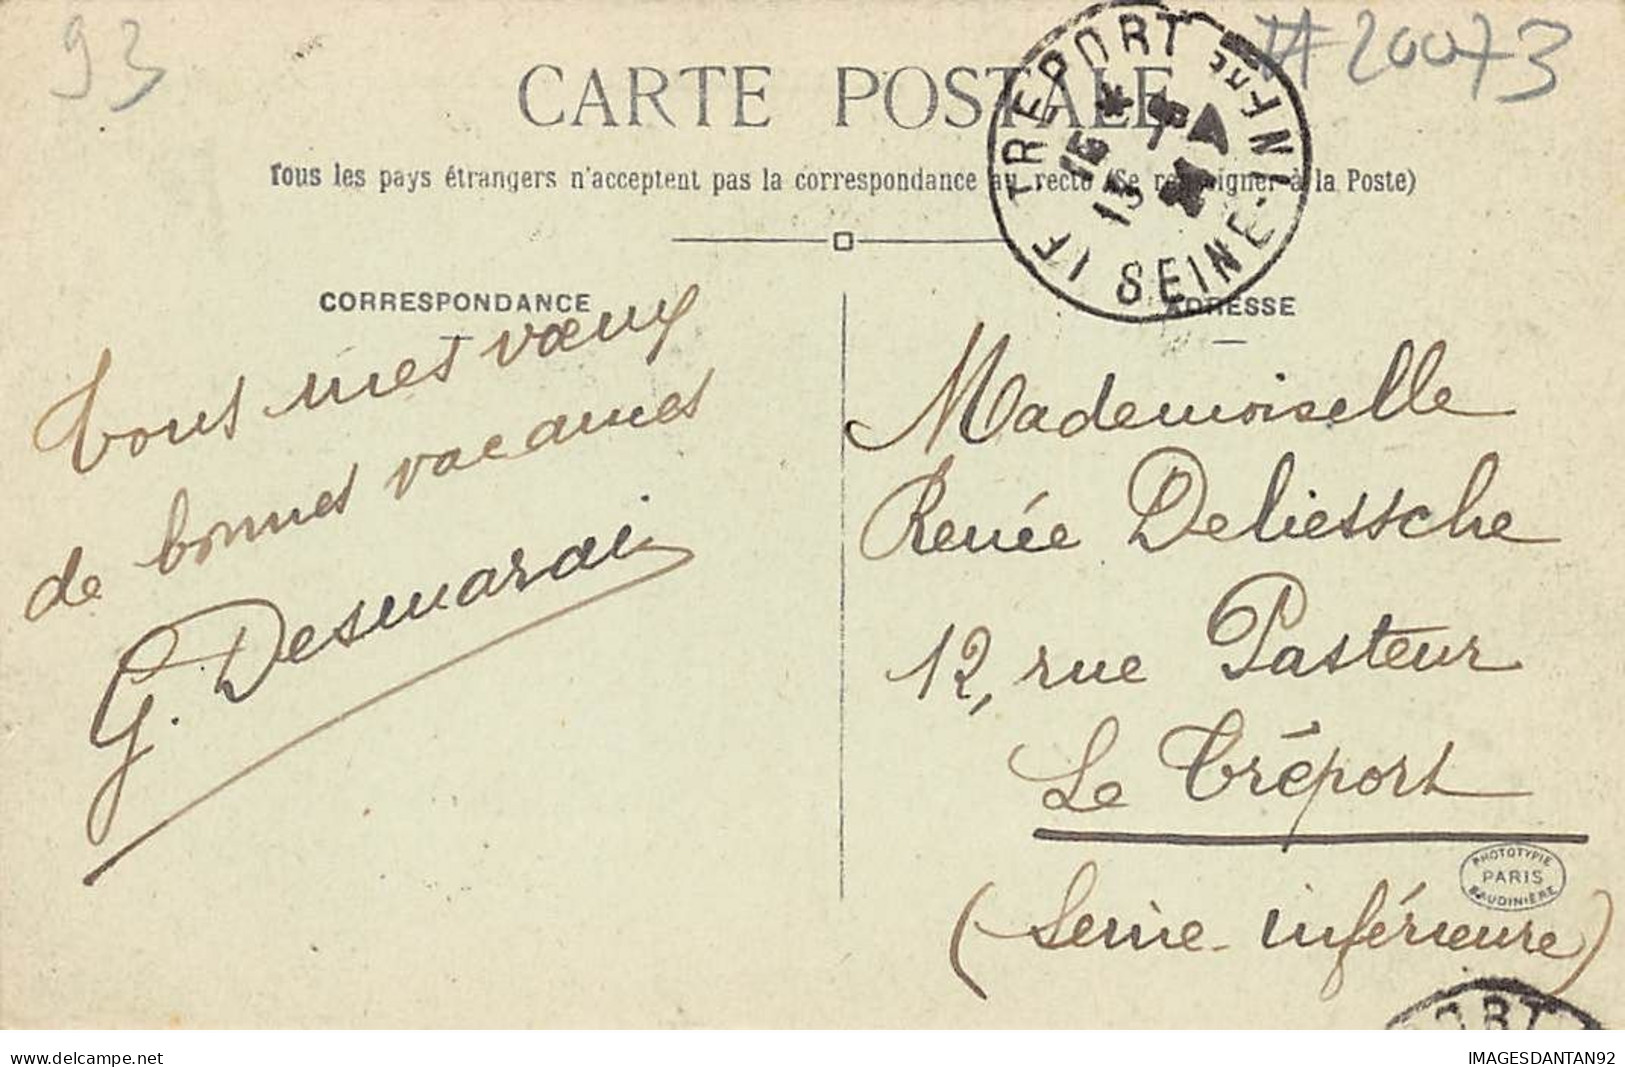 93
#20073
CARTE POSTALE
Tous les pays étrangers n'acceptent pas la correspondance au recto (Se renseigner à la Poste)
LE TREPORT
SEINE-INFRE
CORRESPONDANCE
ADRESSE
Tous mes vœux
de bonnes vacances
G. Desmarais
Mademoiselle
Renée Deliessche
12, rue Pasteur
Le Tréport
(Seine-inférieure)
PHOTOTYPIE
PARIS
BAUDINIÈRE
PORT
delcampe.net
IMAGESDANTAN92